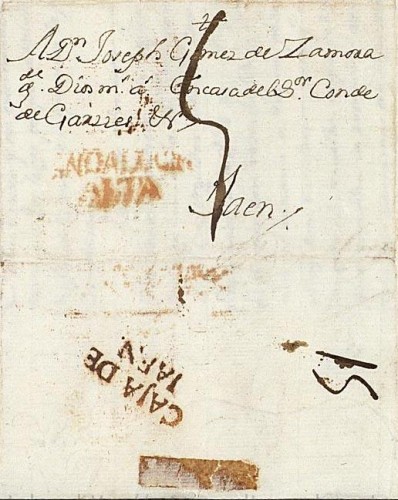 A Dn. Joseph Gomez de Zamora
q. de Dios m. a. En casa del Sor. Conde
de Garzies &
ANDALUCIA
ALTA
Jaen
CAJA DE
JAEN